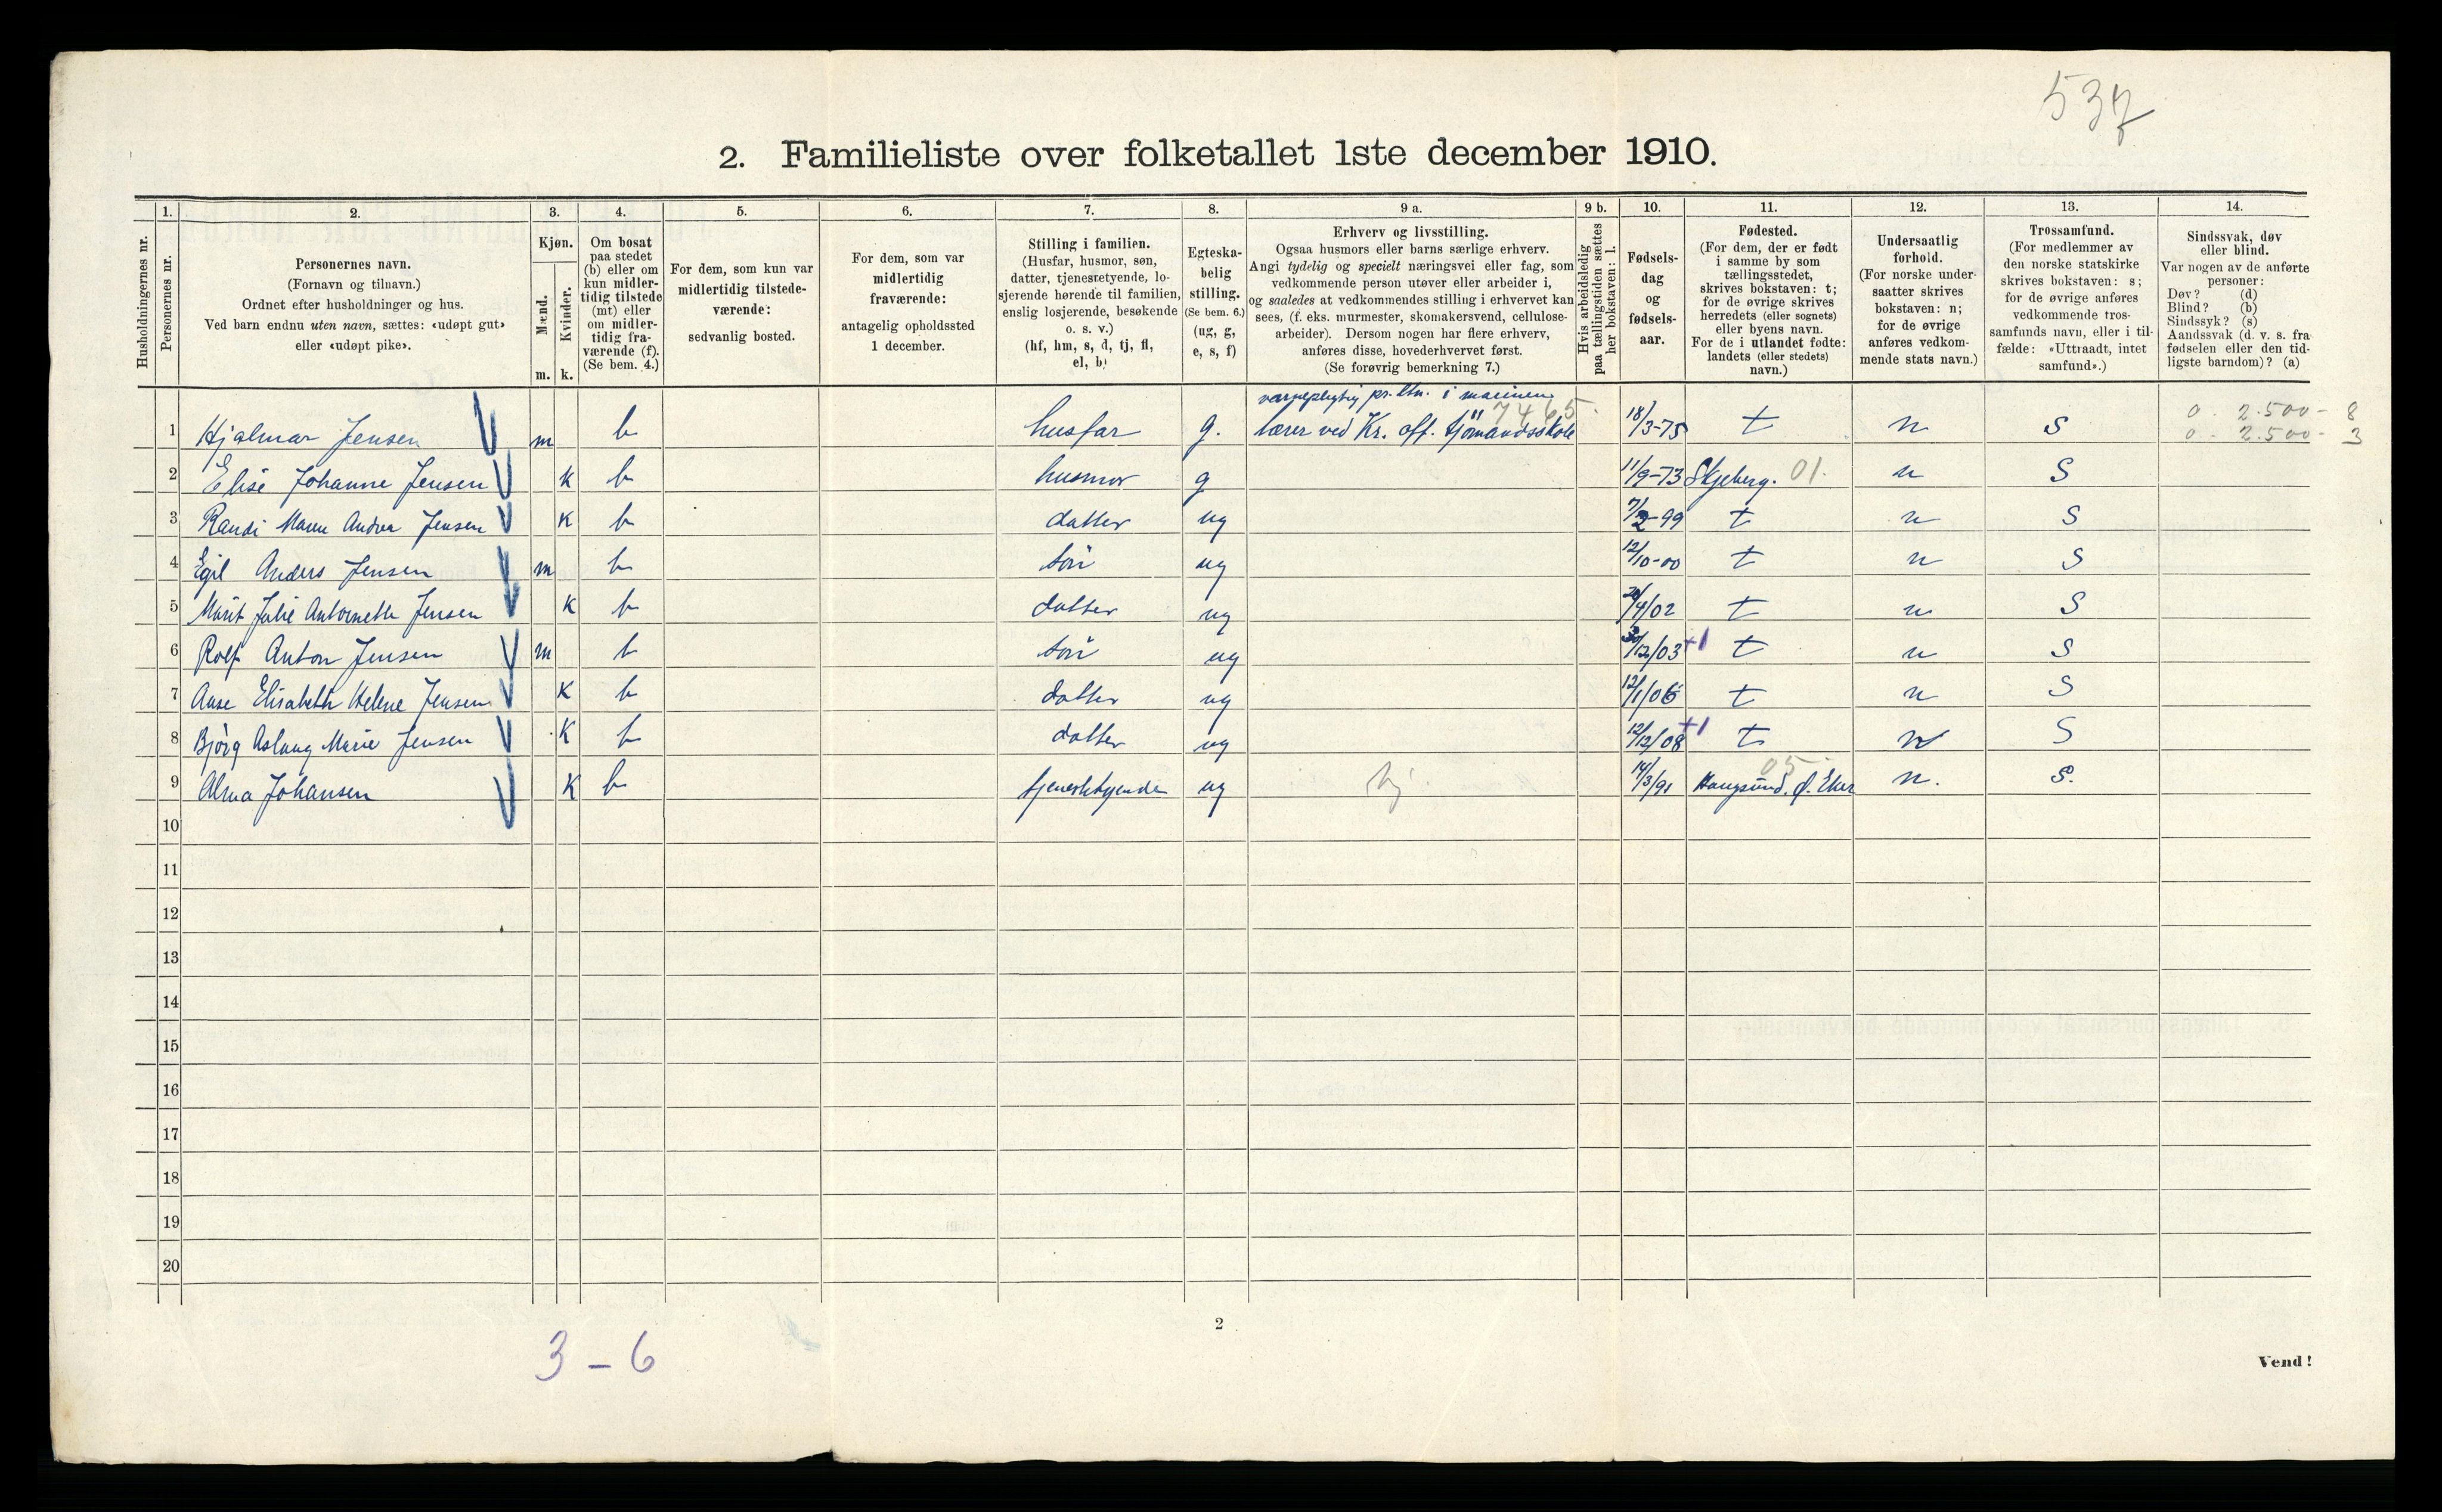 537
2. Familieliste over folketallet 1ste december 1910.
1. 2. 3. 4. 5. 6. 7. 8. 9 a. 9 b. 10. 11. 12. 13. 14.
Husholdningernes nr.
Personernes nr.
Personernes navn.
(Fornavn og tilnavn.)
Ordnet efter husholdninger og hus.
Ved barn endnu uten navn, sættes: «udøpt gut»
eller «udøpt pike».
Kjøn.
Mænd.
Kvinder.
m. k.
Om bosat
paa stedet
(b) eller om
kun midler-
tidig tilstede
(mt) eller
om midler-
tidig fra-
værende (f).
(Se bem. 4.)
For dem, som kun var
midlertidig tilstede-
værende:
sedvanlig bosted.
For dem, som var
midlertidig
fraværende:
antagelig opholdssted
1 december.
Stilling i familien.
(Husfar, husmor, søn,
datter, tjenestetyende, lo-
sjerende hørende til familien,
enslig losjerende, besøkende
o. s. v.)
(hf, hm, s, d, tj, fl,
el, b)
Egteska-
belig
stilling.
(Se bem. 6.)
(ug, g,
e, s, f)
Erhverv og livsstilling.
Ogsaa husmors eller barns særlige erhverv.
Angi tydelig og specielt næringsvei eller fag, som
vedkommende person utøver eller arbeider i,
og saaledes at vedkommendes stilling i erhvervet kan
sees, (f. eks. murmester, skomakersvend, cellulose-
arbeider). Dersom nogen har flere erhverv,
anføres disse, hovederhvervet først.
(Se forøvrig bemerkning 7.)
Hvis arbeidsledig
paa tællingstiden sættes
her bokstaven: l.
Fødsels-
dag
og
fødsels-
aar.
Fødested.
(For dem, der er født
i samme by som
tællingsstedet,
skrives bokstaven: t;
for de øvrige skrives
herredets (eller sognets)
eller byens navn.
For de i utlandet fødte:
landets (eller stedets)
navn.)
Undersaatlig
forhold.
(For norske under-
saatter skrives
bokstaven: n;
for de øvrige
anføres vedkom-
mende stats navn.)
Trossamfund.
(For medlemmer av
den norske statskirke
skrives bokstaven: s;
for de øvrige anføres
vedkommende tros-
samfunds navn, eller i til-
fælde: «Uttraadt, intet
samfund».)
Sindssvak, døv
eller blind.
Var nogen av de anførte
personer:
Døv? (d)
Blind? (b)
Sindssyk? (s)
Aandssvak (d. v. s. fra
fødselen eller den tid-
ligste barndom)? (a)
vernepligtig pr.ltn. i marinen
7465 0. 2.500 - 8
1 Hjalmar Jensen m b husfar g. lærer ved Kr. off. sjömandsskole 18/3-75 t n s 0. 2.500 - 3
2 Elise Johanne Jensen k b husmor g 11/9-73 Skjeberg. 01. n S
3 Randi Maren Andrea Jensen k b datter ug 7/2-99 t n S
4 Egil Anders Jensen m b sön ug 12/10-00 t n S
5 Marit Julie Antoinette Jensen k b datter ug /02 t n S
6 Rolf Anton Jensen m b sön ug /12/03 +1 t n S
7 Aase Elisabeth Helene Jensen k b datter ug 12/1/06 t n S
8 Bjørg Aslaug Marie Jensen k b datter ug 12/12/08 +1 t n S
05
9 Alma Johansen k b tjenestetyende ug hj. 14/3/91 Haugsund. Ø. Eker n. S.
10
11
12
13
14
15
16
17
18
19
20
2
3 - 6
Vend!